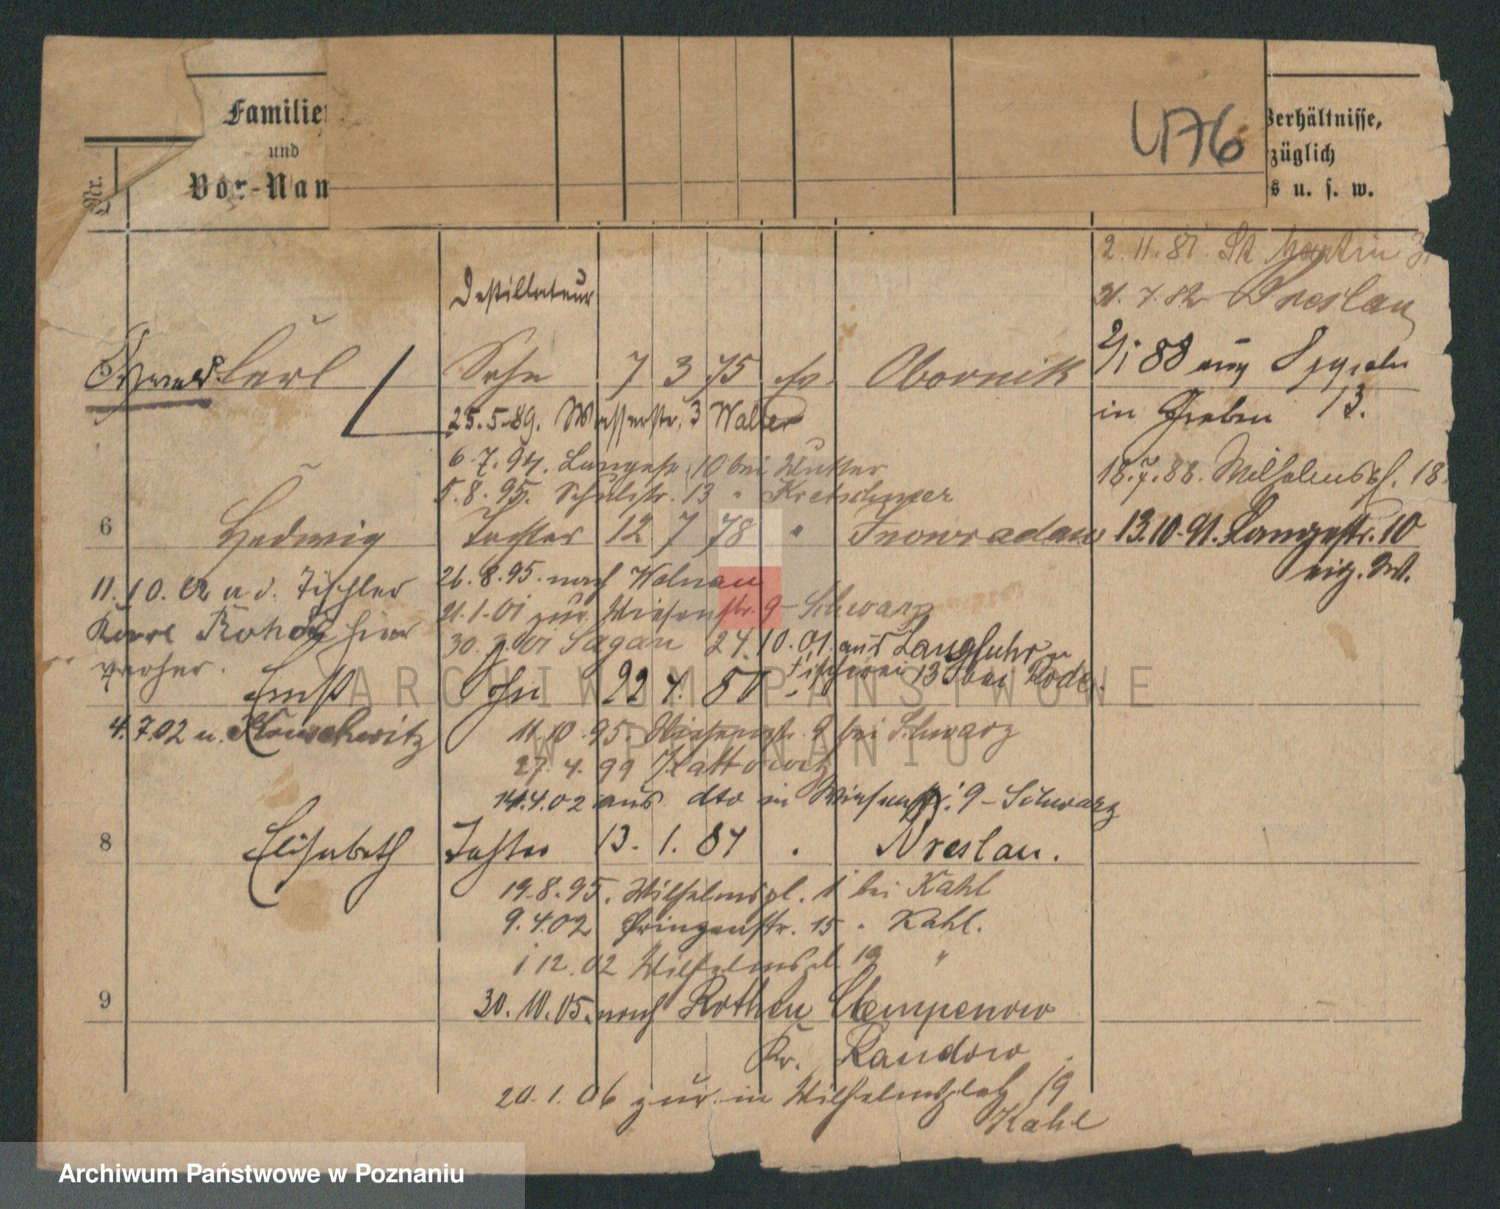 Familien
und
Vor-Nam
Nr.
476
Verhältnisse,
züglich
s u. s. w.
2.11.81. St Martin
Destillateur
21.7.82 Breslau
Carl Sohn 7 3 75 ev. Obornik
2/1 88 aus
25.5.89. Wasserstr. 3 Walter
in Graben 13.
6.7.94. Langestr. 10 bei
18.7.88. Wilhelmspl. 18
5.8.95. Schulstr. 13 " Kretschmer
6 Hedwig Tochter 12 7 78 " Inowradaw 13.10.91. Langestr. 10
11.10.02 a. d. Tischler
26.8.95. nach Kolmau
Karl hier
21.1.01 zur. Wiesenstr. 9 - Schwarz
30. 01 Sagan 24.10.01 aus Langfuhr
verher.
Fischerei 13 bei Rode.
Ernst Sohn 22 4. 80 "
4.7.02 n.
11.10.95. Wiesenstr. 9 bei Schwarz
27.4.99 Kattowitz
14.4.02 aus dto in Wiesenstr. 9 - Schwarz
8 Elisabeth Tochter 13. 1. 84 " Breslau.
19.8.95. Wilhelmspl. 1 bei Kahl
9.4.02 Prinzenstr. 15 " Kahl.
1 12.02 Wilhelmspl. 19 "
9
30.10.05. nach Rothen Clempenow
Kr. Randow
20.1.06 zur. in Wilhelmsplatz 19
Kahl
ARCHIWUM PAŃSTWOWE
W POZNANIU
Archiwum Państwowe w Poznaniu